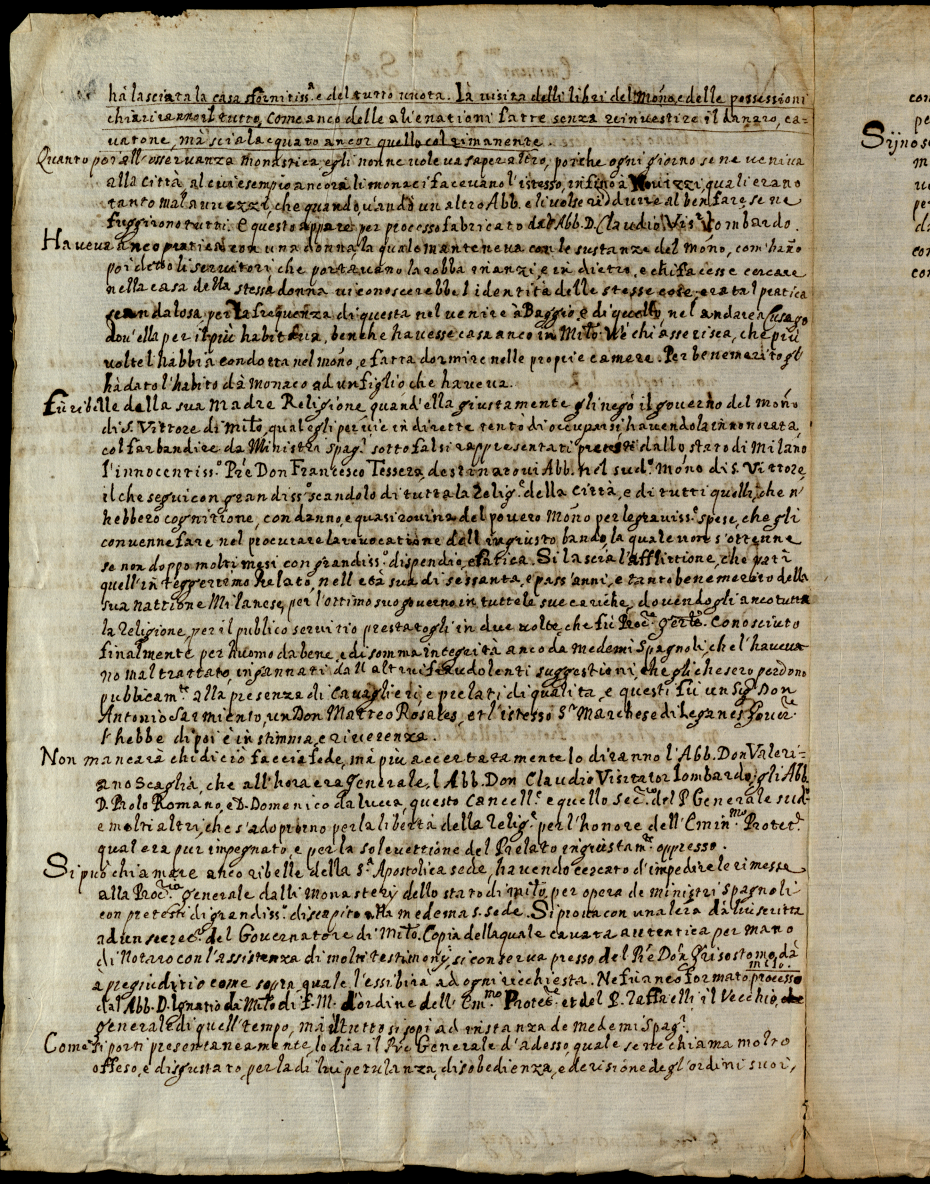 hà lasciata la casa sfornitiss.ª e del tutto vuota. Là visita delli libri del Moño, e delle possessioni
chiariranno il tutto, Come anco delle alienationi fatte senza reinvestire il danaro, ca-
uatone, mà scialacquato ancor quello col rimanente.
Quanto poi all'osseruanza Monastica, egli non ne voleua saper altro, poiche ogni giorno se ne veniua
alla Città, al cui esempio ancora li monaci faceuano l'istesso, infino à Nouizzi, quali erano
tanto mal auuezzi, che quando un altro Abb. e li volse ridurre al ben fare, se ne
fuggirono tutti. E questo appare per processo fabricato dal Abb. D. Claudio Vis.r Lombardo.
Haveua anco pratica con una donna, la quale manteneua con le sustanze del moño, com' hano
poi detto li seruitori che portauano la robba inanzi, e in dietro, e chi facesse cercare
nella casa della stessa donna ui conoscerebbe l'identità delle stesse cose, era tal pratica
scandalosa, per la frequenza di questa nel venire à Baggio, e di quello nel andare a Cusago
dou'ella per il più habitaua, benche hauesse casa anco in Milo. V'è chi asserisca, che più
volte l'habbia condotta nel moño, e fatta dormire nelle proprie camere. Per benemerito gl'
hà dato l'habito dà monaco ad un figlio che haueua.
Fù ribelle della sua Madre Religione, quand'ella giustamente gli negò il gouerno del moño
di S. Vittore di Milo, qual egli per vie indirette tentò di occuparsi, hauendola inhonorata
col far bandire da Ministri Spag.li sotto falsi rappresentati pretesti dallo stato di Milano
l'innocentiss.º Pre Don Francesco Tessera, destinatoui Abb. nel sud.º Moño di S. Vittore,
il che seguì con grandiss.º scandolo di tutta la Relig.e della Città, e di tutti quelli, che n'
hebbero cognitione, con danno, e quasi rouina del pouero Moño per le grauiss.e spese, che gli
conuenne fare nel procurare la reuocatione dell'ingiusto bando, la quale non s'ottenne
se non doppo molti mesi con grandiss.º dispendio, e fatica. Si lascia l'afflittione, che patì
quell'integerrimo Prelato, nell'età sua di sessanta, e pass'anni, e tanto benemerito della
sua nattione Milanese, per l'ottimo suo gouerno in tutte le sue cariche, douendogli anco tutta
la Religione, per il publico seruitio prestatogli in due volte che fù Proc.re Gen.le. Conosciuto
finalmente per huomo da bene, e di somma integrità anco da medemi Spagnoli, che l'haueua
no maltrattato, ingannati dall'altrui fraudolenti suggestioni, che gli chesero perdono
pubbicam.te alla presenza di Cauaglieri, e prelati di qualita, e questi fù un Sig.r Don
Antonio Sarmiento, un Don Matteo Rosales, et l'istesso S.r Marchese di Leganes Gouer.re
l'hebbe di poi è in stimma, e riuerenza.
Non mancarà chi di ciò faccia fede, mà più accertatamente lo diranno l'Abb. Don Valeri-
ano Scaglia, che all'hora era generale, l'Abb. Don Claudio Visitator Lombardo, gli Abb.
D. Paolo Romano, e D. Domenico da Lucca, questo Cancell.e e quello Sec.rio del P. Generale sud.º
e molti altri, che s'adoprorno per la libertà della Relig.e per l'honore dell'Emin.mo Protet.e
qual era pur impegnato, e per la soleuettione del Prelato ingiustam.te oppresso.
Si può chiamare anco ribelle della S.ª Apostolica sede, hauendo cercato d'impedire le rimesse
alla Proc.ria generale dalli Monasterij dello stato di Milo, per opera de ministri Spagnoli
con pretesti di grandiss.º discapito alla medema S. sede. Si proua con una lra dà lui scritta
ad un secret.º del Gouernatore di Milo. Copia della quale cauata autentica per mano
di Notaro con l'assistenza di molti testimonij, si conserua presso del Pre Don Grisostomo da
Milo.
à pregiuditio come sopra, quale l'essibirà ad ogni richiesta. Ne fù anco formato processo
dal Abb. D. Ignatio da Milo di F. M. d'ordine dell'Em.mo Protet.e et del P. Raffaelli il Vecchio,
generale di quell tempo, mà il tutto si sopì ad instanza de medemi Spag.li.
Come si porti presentaneamente, lo dica il Pre Generale d'adesso, quale se ne chiama molto
offeso, e disgustato, per la di lui petulanza, disobedienza, e derisione degl'ordini suoi,